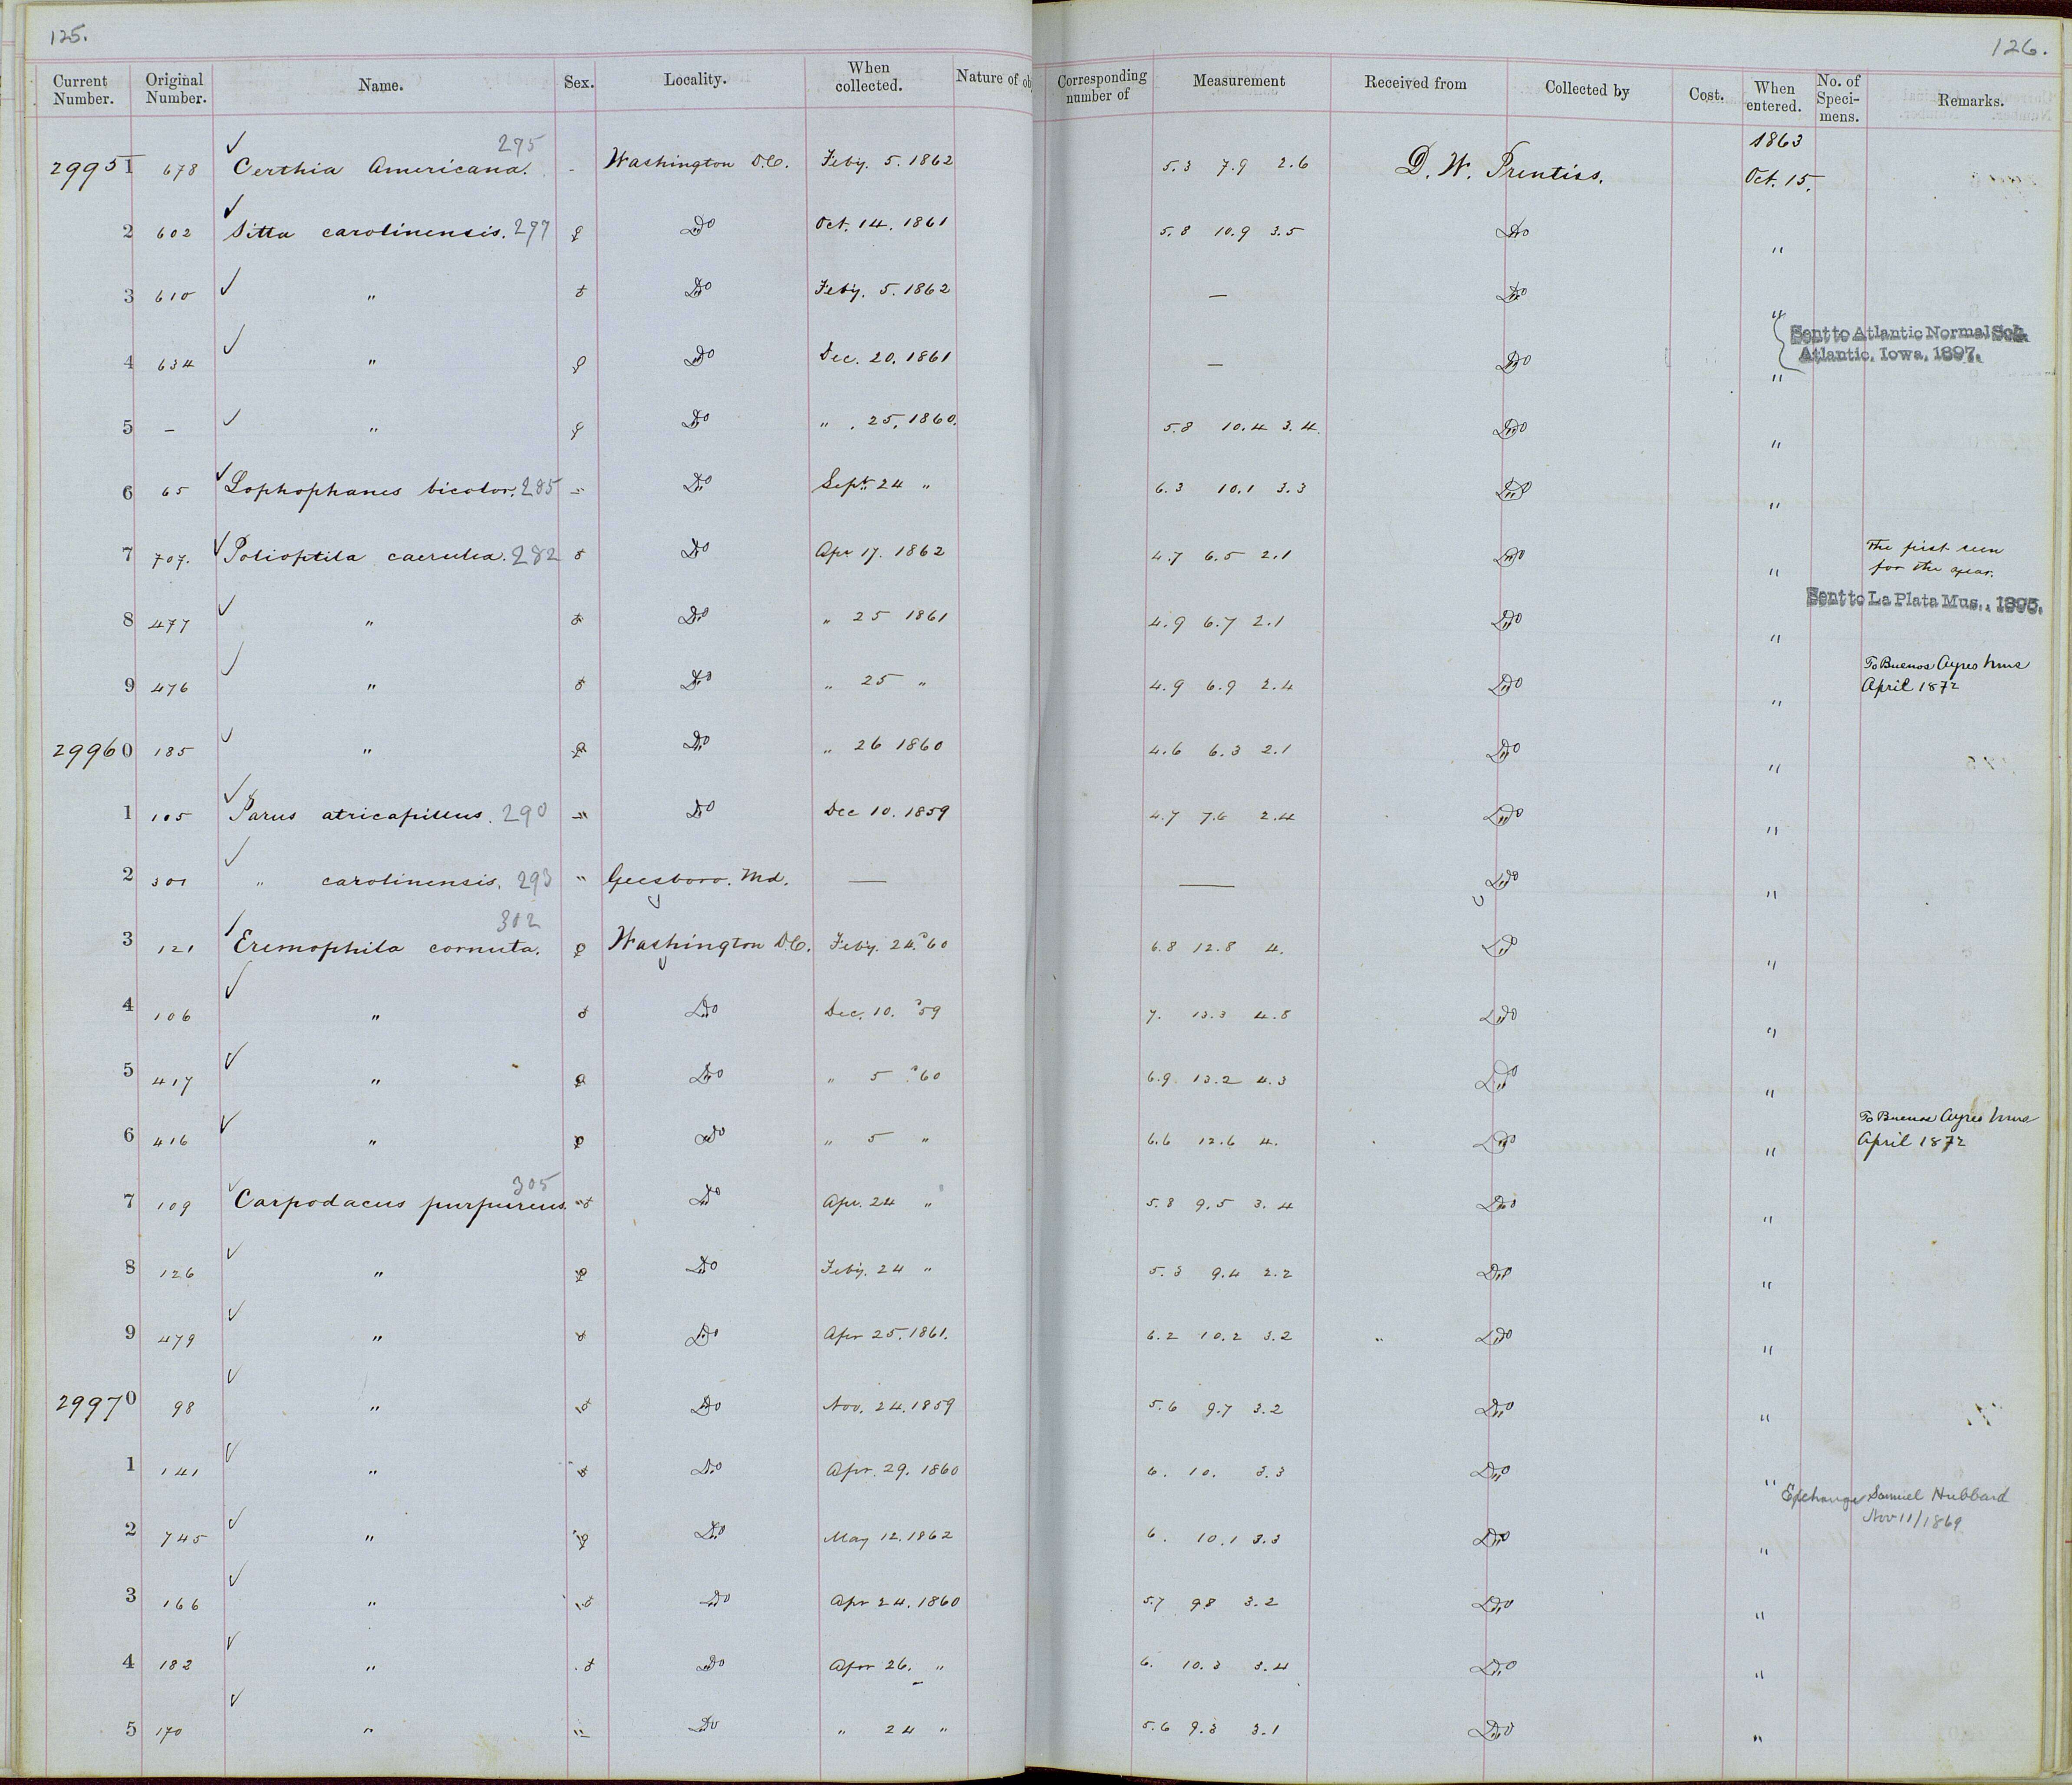 125.
126.
Current Number. Original Number. Name. Sex. Locality. When collected. Nature of ob Corresponding number of Measurement Received from Collected by Cost. When entered. No. of Speci-mens. Remarks.
29951 678 ✓ Certhia Americana. 295 - Washington D.C. Feby. 5. 1862 5.3 7.9 2.6 D. W. Prentiss. 1863 Oct. 15.
2 602 ✓ Sitta carolinensis. 297 ♀ Do Oct. 14. 1861 5.8 10.9 3.5 Do "
3 610 ✓ " ♂ Do Feby. 5. 1862 — Do "
Sent to Atlantic Normal Sch.
Atlantic, Iowa, 1897.
4 634 ✓ " ♀ Do Dec. 20. 1861 — Do "
5 – ✓ " ♀ Do " . 25, 1860. 5.8 10.4 3.4 Do "
6 65 ✓ Lophophanes bicolor. 285 - Do Sept. 24 " 6.3 10.1 3.3 Do "
7 707. ✓ Polioptila caerulea. 282 ♂ Do Apr 17. 1862 4.7 6.5 2.1 Do " The first seen
for the year.
Sent to La Plata Mus., 1895.
8 477 ✓ " ♂ Do " 25 1861 4.9 6.7 2.1 Do "
9 476 ✓ " ♂ Do " 25 " 4.9 6.9 2.4 Do " To Buenos Ayres Mus
April 1872
29960 185 ✓ " ♀ Do " 26 1860 4.6 6.3 2.1 Do "
1 105 ✓ Parus atricapillus. 290 " Do Dec 10. 1859 4.7 7.6 2.4 Do "
2 301 ✓ " carolinensis. 293 " Geesboro. Md. — — Do "
3 121 ✓ Eremophila cornuta. 302 ♀ Washington D.C. Feby. 24. '60 6.8 12.8 4. Do "
4 106 ✓ " ♂ Do Dec. 10. '59 7. 13.3 4.5 Do "
5 417 ✓ " ♀ Do " 5 '60 6.9 13.2 4.3 Do "
6 416 ✓ " ♀ Do " 5 " 6.6 12.6 4. Do " To Buenos Ayres Mus
April 1872
7 109 ✓ Carpodacus purpureus. 305 ♂ Do Apr. 24 " 5.8 9.5 3.4 Do "
8 126 ✓ " ♀ Do Feby. 24 " 5.3 9.4 2.2 Do "
9 479 ✓ " ♂ Do Apr 25. 1861. 6.2 10.2 3.2 " Do "
29970 98 ✓ " ♂ Do Nov. 24. 1859 5.6 9.7 3.2 Do "
1 141 ✓ " ♂ Do Apr. 29. 1860 6. 10. 3.3 Do "
Exchange Samuel Hubbard
Nov 11/1869
2 745 ✓ " ♀ Do May 12. 1862 6. 10.1 3.3 Do "
3 166 ✓ " ♂ Do Apr 24. 1860 5.7 98 3.2 Do "
4 182 ✓ " ♂ Do Apr 26. " 6. 10.3 3.4 Do "
5 170 ✓ " " Do " 24 " 5.6 9.3 3.1 Do "